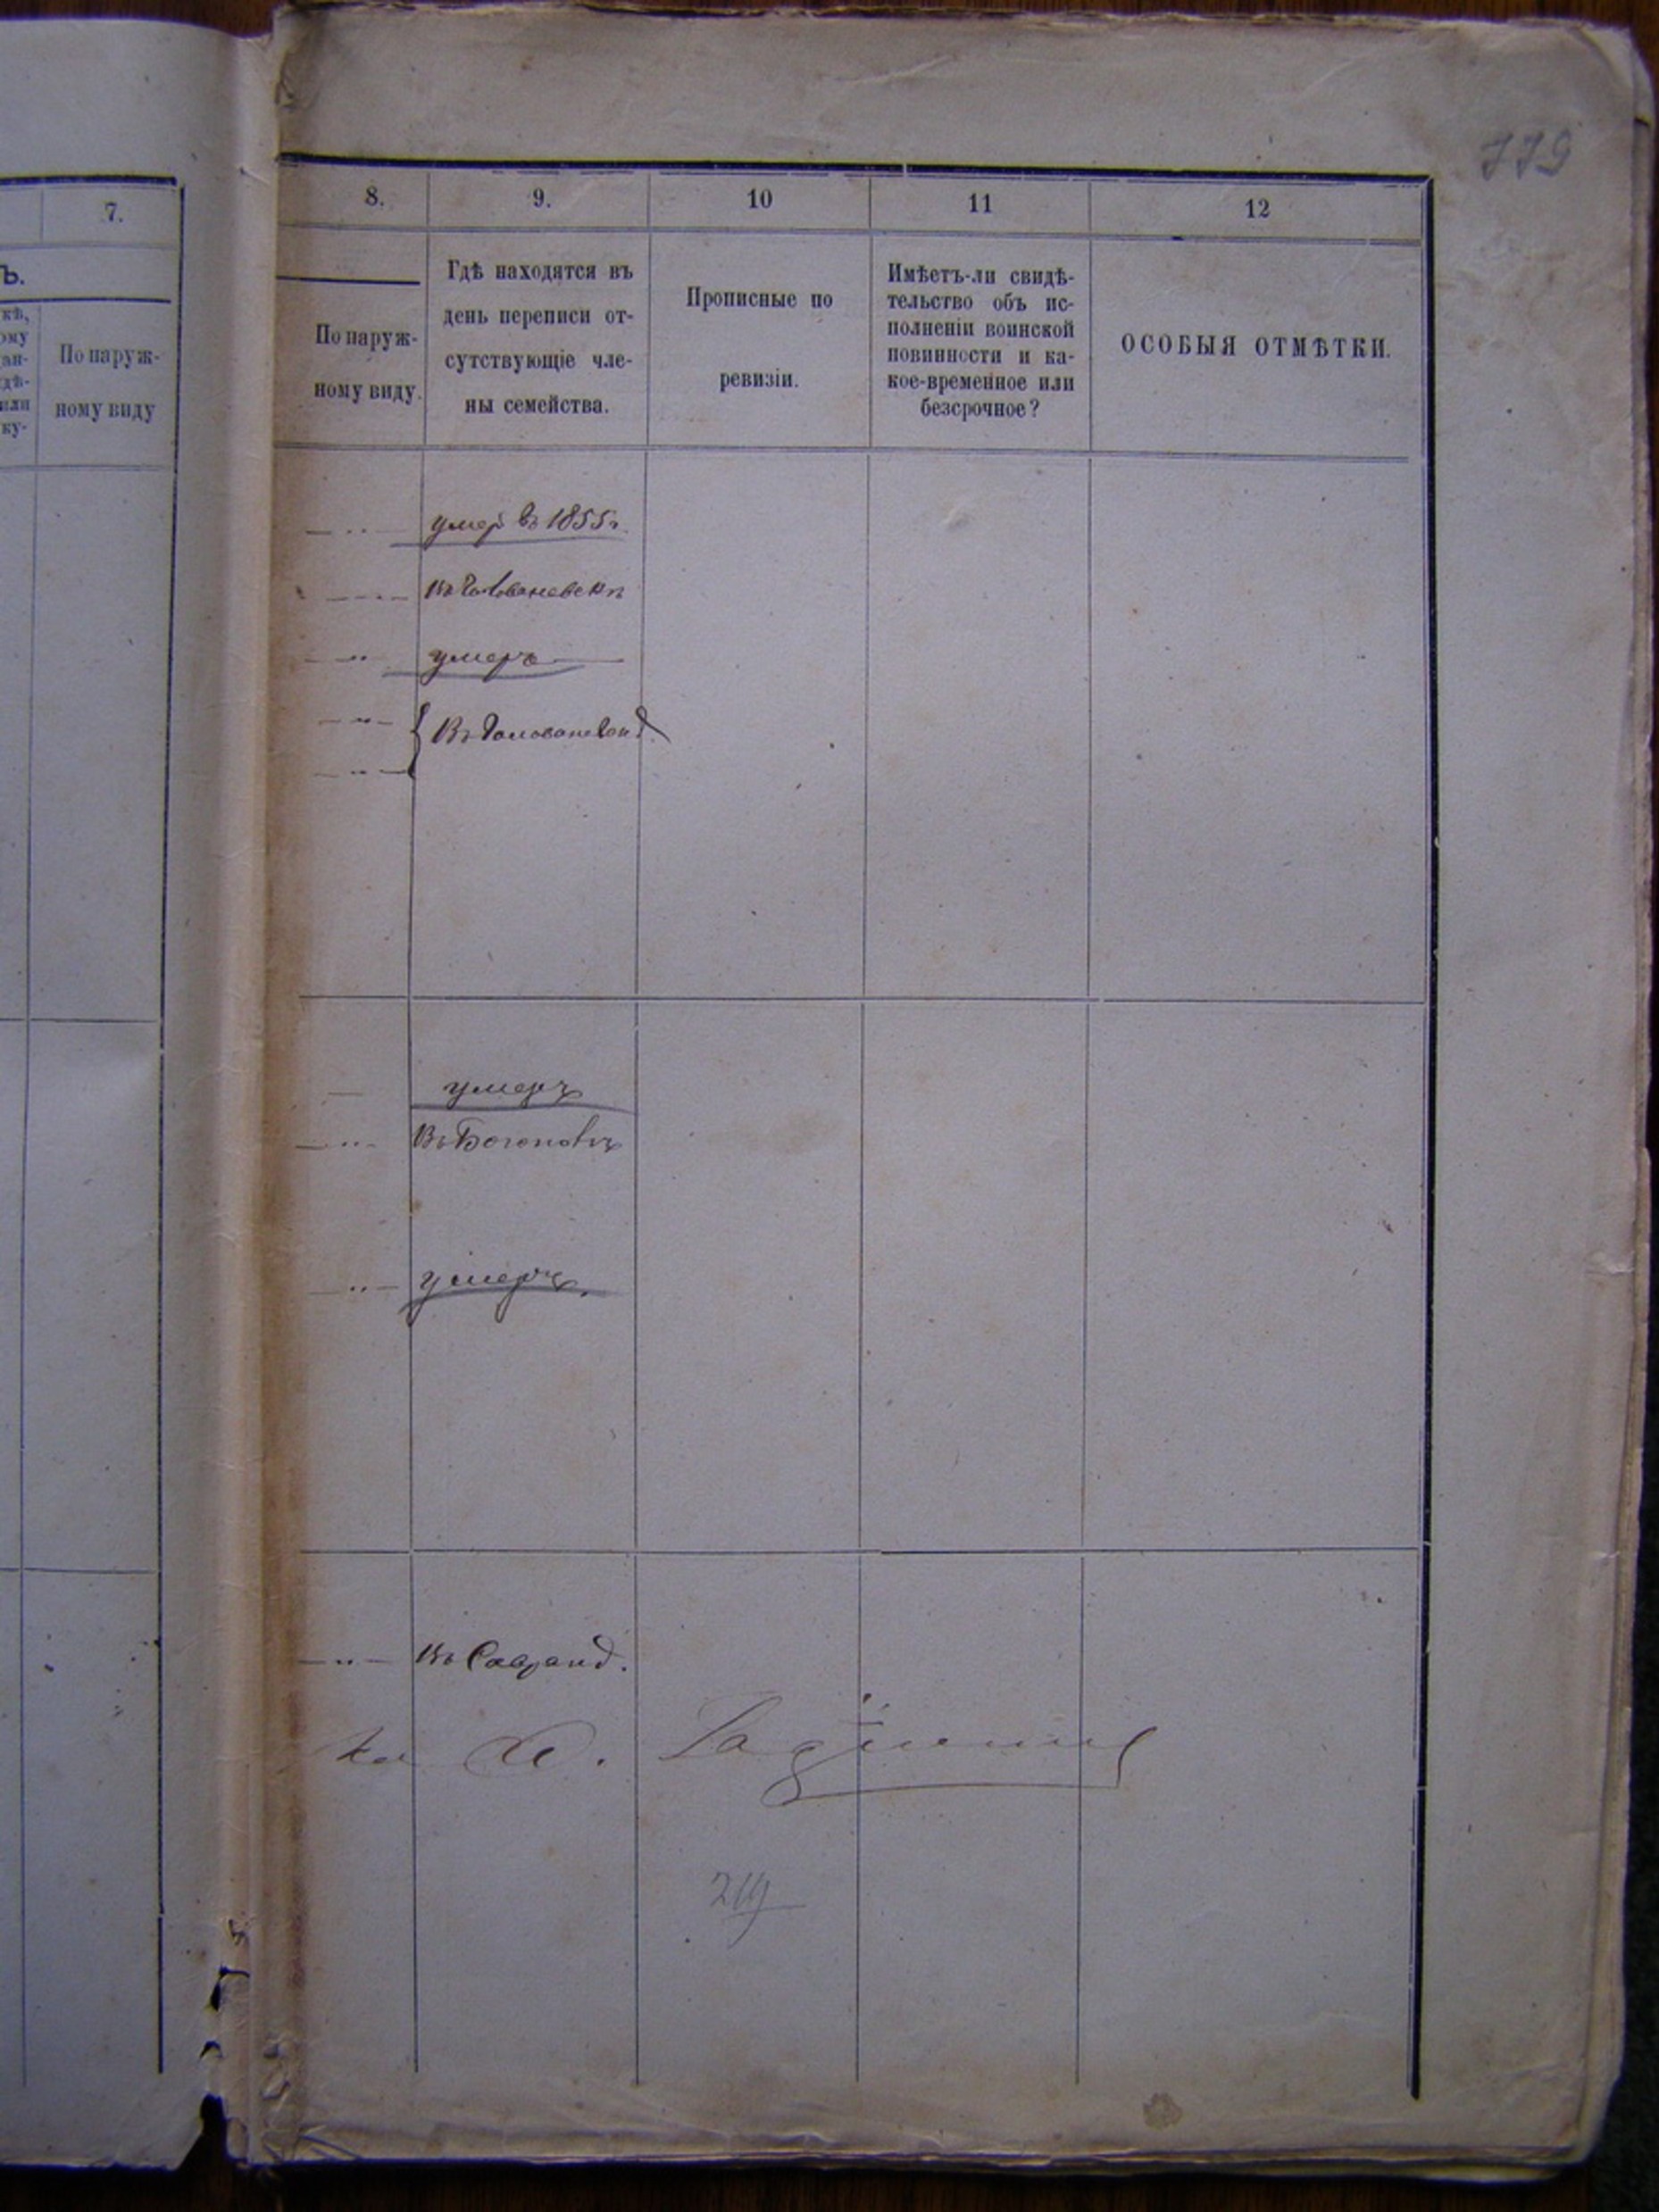 779
7.
Ъ.
По наруж-
ному виду
8.
9.
10
11
12
По наруж-
ному виду.
Гдѣ находятся въ
день переписи от-
сутствующіе чле-
ны семейства.
Прописные по
ревизіи.
Имѣетъ-ли свидѣ-
тельство объ ис-
полненіи воинской
повинности и ка-
кое-временное или
безсрочное?
ОСОБЫЯ ОТМѢТКИ.
умеръ въ 1855 г.
въ Голованевскѣ
умеръ
Въ Голованевскѣ
умеръ
Въ Богополѣ
умеръ
Въ Саврани.
219